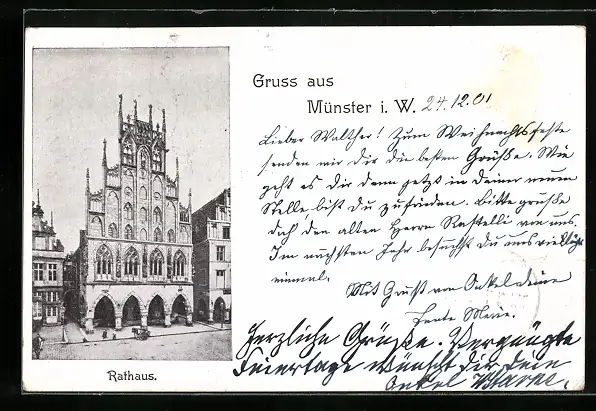 Gruss aus
Münster i. W. 24.12.01
Lieber Walther! Zum Weihnachtsfeste
senden wir Dir die besten Grüße. Wie
geht es Dir denn jetzt in Deiner neuen
Stelle bist Du zufrieden. Bitte grüße
doch den alten Herrn Rastelli von uns.
Im nächsten Jahr besuchst Du uns vielleicht
einmal.
Mit Gruß von Onkel Deine
Tante Marie.
Herzliche Grüße. Vergnügte
Feiertage wünscht dir dein
Onkel
Rathaus.